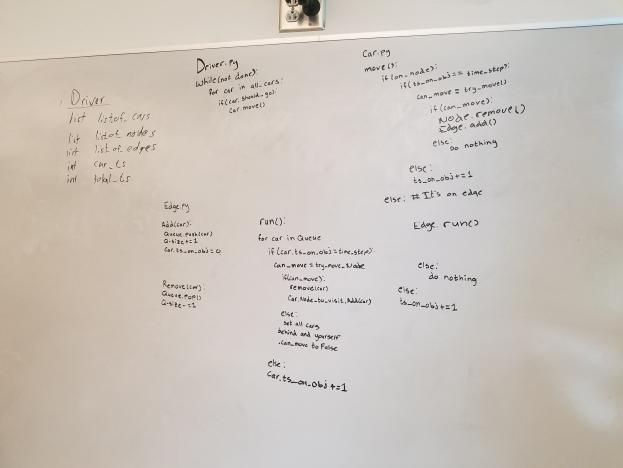 Driver
list listof_cars
list listof_nodes
list list_of_edges
int car_ts
int total_ts
Driver.py
While(not done):
for car in all_cars:
if(car.should_go):
car.move()
Car.py
move():
if(on_node):
if(ts_on_obj == time_step):
can_move = try_move()
if(can_move):
Node.remove()
Edge.add()
else:
do nothing
else:
ts_on_obj+=1
else: #It's on edge
Edge.run()
else:
do nothing
else:
ts_on_obj+=1
Edge.py
Add(car):
Queue.push(car)
Q-size+=1
Car.ts_on_obj=0
Remove(car):
Queue.pop()
Q-size-=1
run():
for car in Queue
if(car.ts_on_obj=time_step):
can_move=try_move_Node
if(can_move):
remove(car)
Car.Node_to_visit.Add(car)
else:
set all cars
behind and yourself
.can_move to False
else:
Car.ts_on_obj+=1